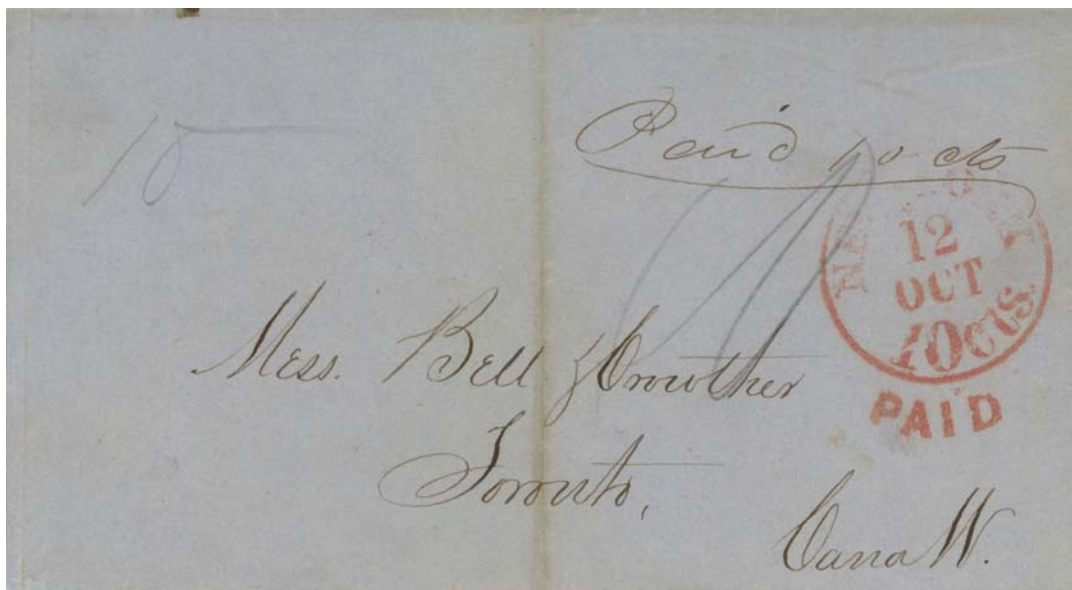 10
Paid 10 cts
NEW YORK
12
OCT
10 cts
PAID
Mess. Bell & Crowther
Toronto,
Cana W.